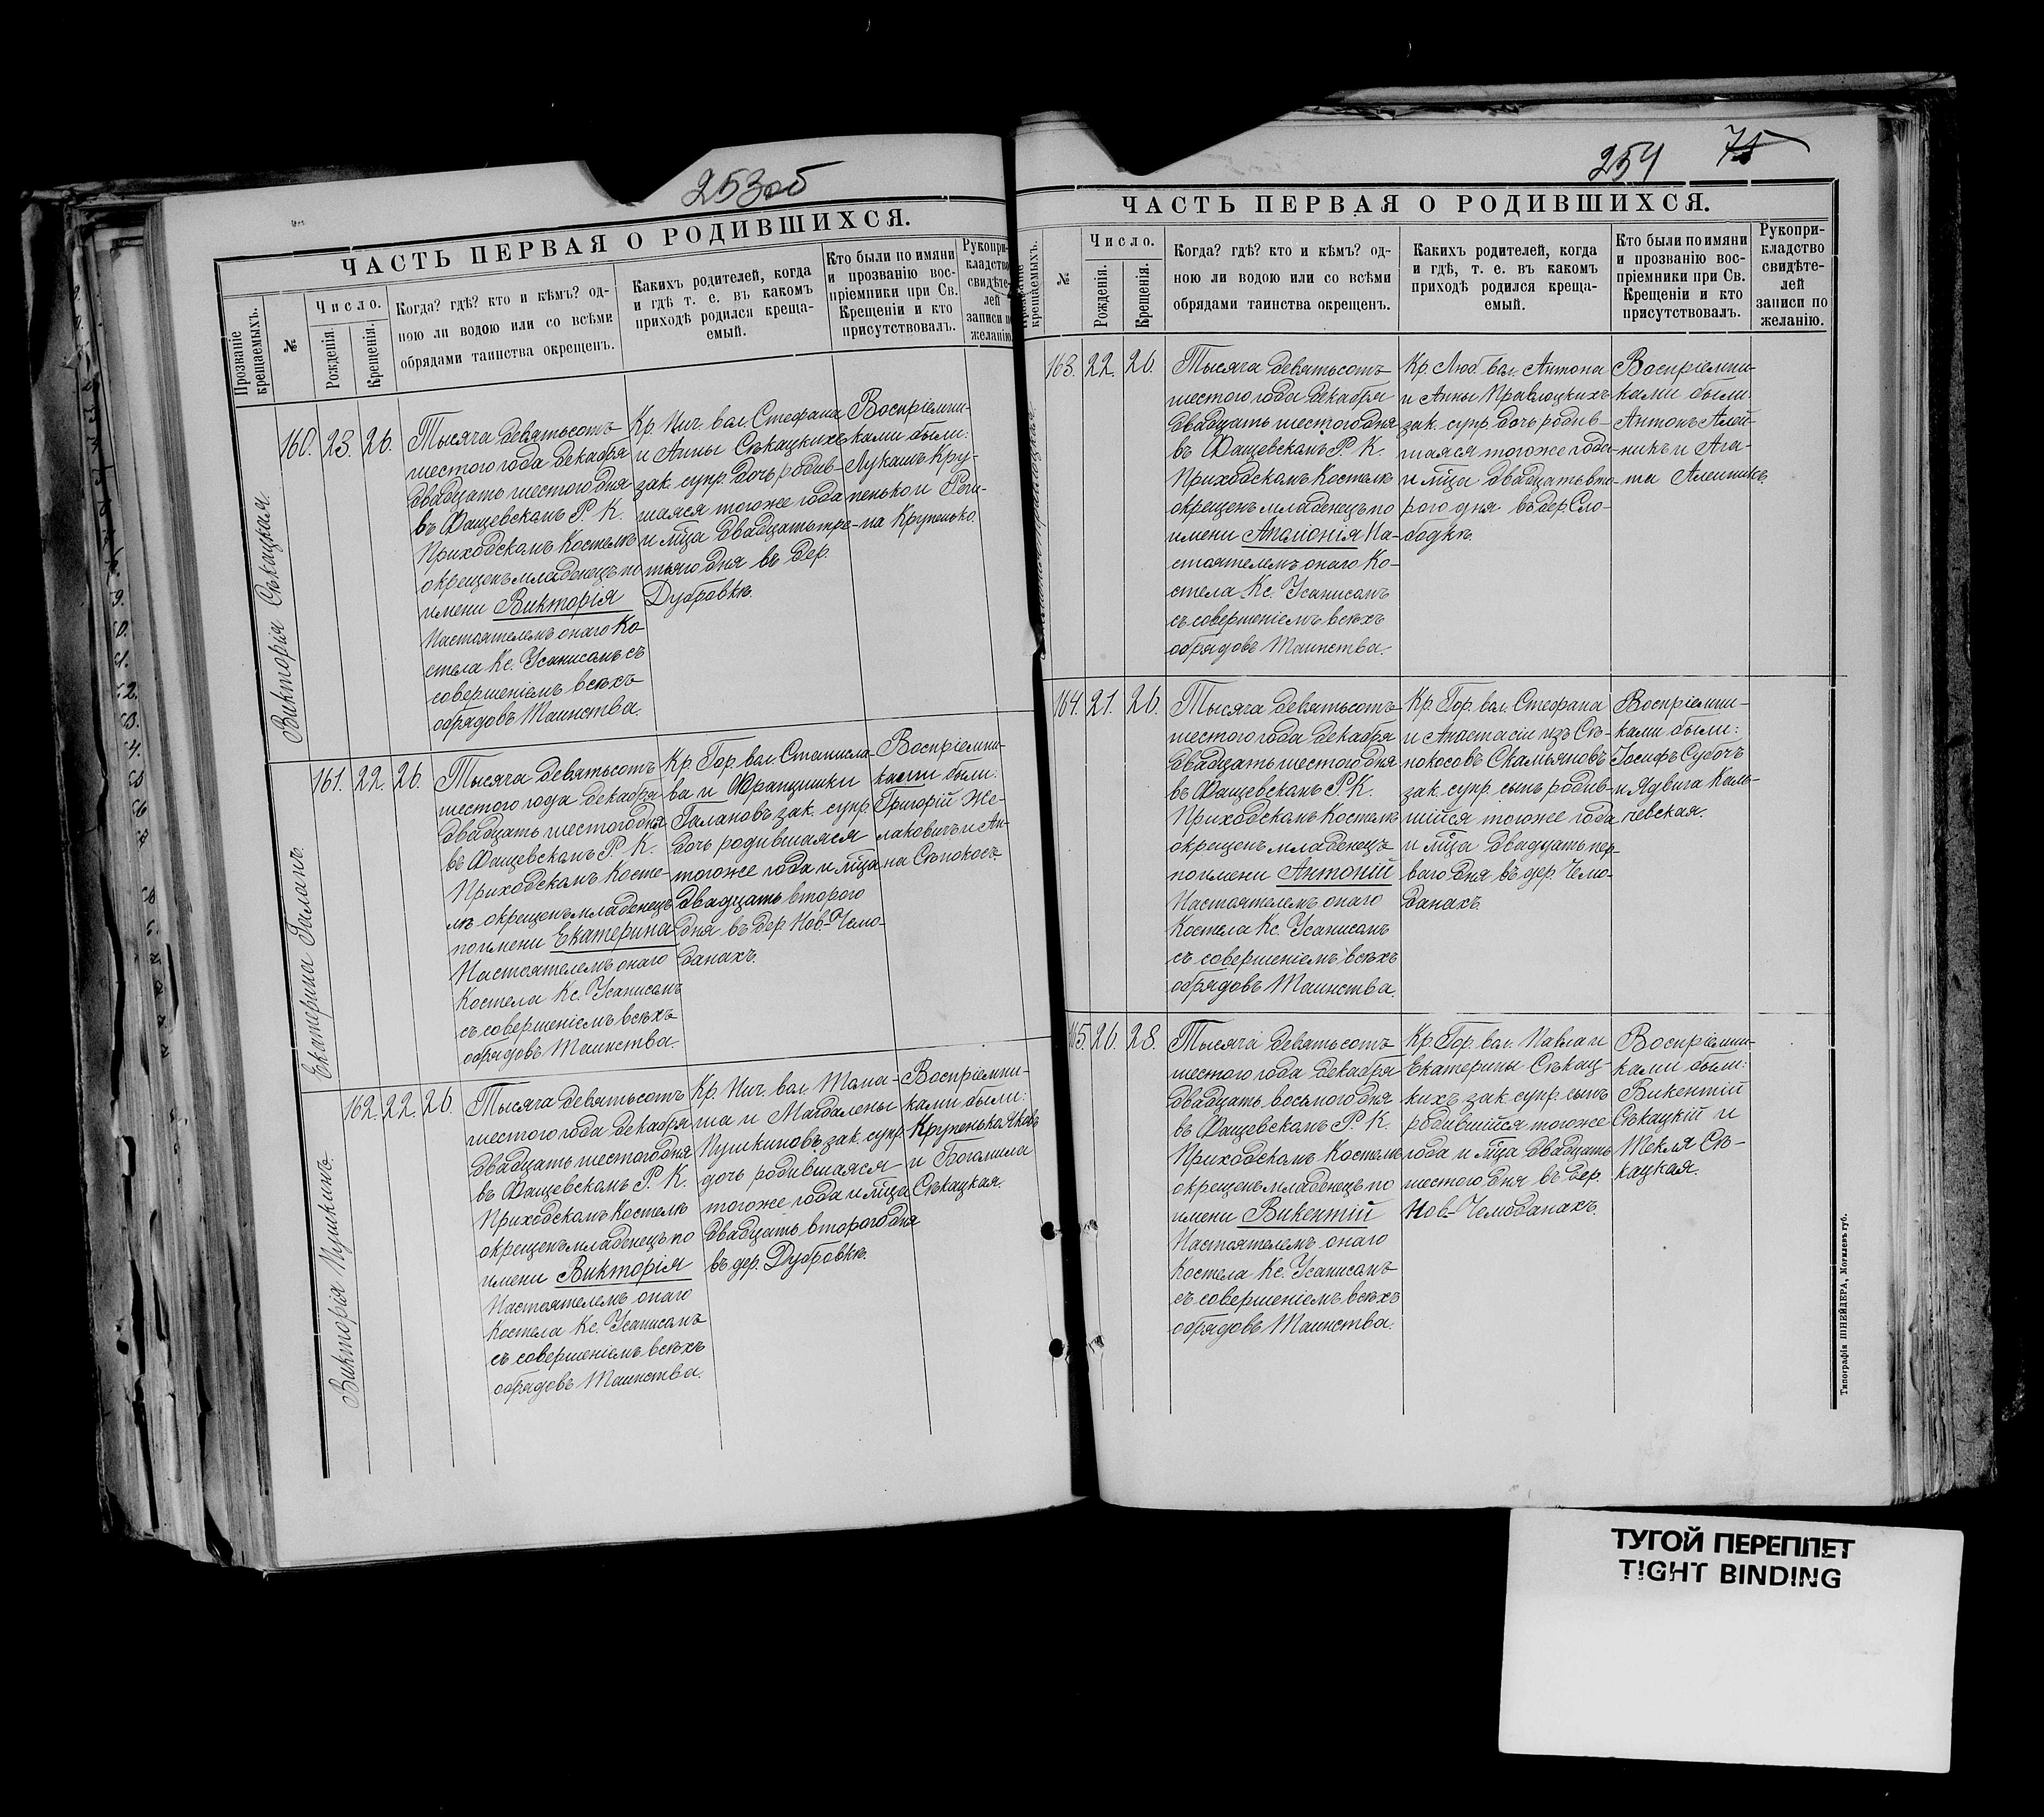 253об
ЧАСТЬ ПЕРВАЯ О РОДИВШИХСЯ.
Прозваніе крещаемыхъ.
№
Число.
Рожденія.
Крещенія.
Когда? гдѣ? кто и кѣмъ? од-
ною ли водою или со всѣми
обрядами таинства окрещенъ.
Какихъ родителей, когда
и гдѣ т. е. въ какомъ
приходѣ родился креща-
емый.
Кто были по имяни
и прозванію вос-
пріемники при Св.
Крещеніи и кто
присутствовалъ.
Рукопри-
кладство
свидѣте-
лей
записи по
желанію.
Викторія Сѣкацкая.
160. 23. 26.
Тысяча девятьсотъ
шестого года декабря
двадцать шестого дня
въ Фащевскомъ Р. К.
Приходскомъ Костелѣ
окрещенъ младенецъ по
имени Викторія
Настоятелемъ онаго Ко
стела Кс. Усанисомъ съ
совершеніемъ всѣхъ
обрядовъ Таинства.
Кр. Нич. вол. Стефана
и Анны Сѣкацкихъ
зак. супр. дочь родив-
шаяся тогоже года
и мѣца двадцать тре-
тьяго дня въ дер.
Дубровкѣ.
Воспріемни-
ками были:
Лукашъ Кру-
пенько и
на Крупенько.
Екатерина Галагъ.
161. 22. 26.
Тысяча девятьсотъ
шестого года декабря
двадцать шестого дня
въ Фащевскомъ Р. К.
Приходскомъ Косте-
лѣ окрещенъ младенецъ
по имени Екатерина
Настоятелемъ онаго
Костела Кс. Усанисомъ
съ совершеніемъ всѣхъ
обрядовъ Таинства.
Кр. Гор. вол. Станисла-
ва и Францишки
зак. супр.
дочь родившаяся
тогоже года и мѣца
двадцать второго
дня въ дер. Нов.-Чемо-
данахъ.
Воспріемни-
ками были:
Григорій Же-
лаковичъ и Ан-
на Сѣнокосъ.
Викторія Пушкинъ.
162. 22. 26.
Тысяча девятьсотъ
шестого года декабря
двадцать шестого дня
въ Фащевскомъ Р. К.
Приходскомъ Костелѣ
окрещенъ младенецъ по
имени Викторія
Настоятелемъ онаго
Костела Кс. Усанисомъ
съ совершеніемъ всѣхъ
обрядовъ Таинства.
Кр. Нич. вол. Тома-
ша и Магдалены
Пушкиновъ, зак. супр.
дочь родившаяся
тогоже года и мѣца
двадцать второго дня
въ дер. Дубровкѣ.
Воспріемни-
ками были:
Крупенько Яковъ
и Богомила
Сѣкацкая.
254 75
ЧАСТЬ ПЕРВАЯ О РОДИВШИХСЯ.
крещаемыхъ.
№
Число.
Рожденія.
Крещенія.
Когда? гдѣ? кто и кѣмъ? од-
ною ли водою или со всѣми
обрядами таинства окрещенъ.
Какихъ родителей, когда
и гдѣ, т. е. въ какомъ
приходѣ родился креща-
емый.
Кто были по имяни
и прозванію вос-
пріемники при Св.
Крещеніи и кто
присутствовалъ.
Рукопри-
кладство
свидѣте-
лей
записи по
желанію.
163. 22. 26.
Тысяча девятьсотъ
шестого года декабря
двадцать шестого дня
въ Фащевскомъ Р. К.
Приходскомъ Костелѣ
окрещенъ младенецъ по
имени Аполіонія На-
стоятелемъ онаго Ко-
стела Кс. Усанисомъ
съ совершеніемъ всѣхъ
обрядовъ Таинства.
Кр. Люб. вол. Антона
и Анны Правлоцкихъ
зак. супр. дочь родив-
шаяся тогоже года
и мѣца двадцать вто-
рого дня въ дер. Сло-
бодкѣ.
Воспріемни-
ками были:
Антонъ Алей-
никъ и Ага-
та Алейникъ.
164. 21. 26.
Тысяча девятьсотъ
шестого года декабря
двадцать шестого дня
въ Фащевскомъ Р. К.
Приходскомъ Костелѣ
окрещенъ младенецъ
по имени Антоній
Настоятелемъ онаго
Костела Кс. Усанисомъ
съ совершеніемъ всѣхъ
обрядовъ Таинства.
Кр. Гор. вол. Стефана
и Анастасіи изъ Сѣ-
нокосовъ Скамьяновъ
зак. супр. сынъ родив-
шійся тогоже года
и мѣца двадцать пер-
ваго дня въ дер. Чемо-
данахъ.
Воспріемни-
ками были:
Іосифъ Суботъ
и Ядвига Каль-
чевская.
165. 26. 28.
Тысяча девятьсотъ
шестого года декабря
двадцать восьмого дня
въ Фащевскомъ Р. К.
Приходскомъ Костелѣ
окрещенъ младенецъ по
имени Викентій
Настоятелемъ онаго
Костела Кс. Усанисомъ
съ совершеніемъ всѣхъ
обрядовъ Таинства.
Кр. Гор. вол. Павла и
Екатерины Сѣкац-
кихъ зак. супр. сынъ
родившійся тогоже
года и мѣца двадцать
шестого дня въ дер.
Нов-Чемоданахъ.
Воспріемни-
ками были:
Викентій
Сѣкацкій и
Текля Сѣ-
кацкая.
Типографія ШНЕЙДЕРА, Могилевъ губ.
ТУГОЙ ПЕРЕПЛЕТ
TIGHT BINDING